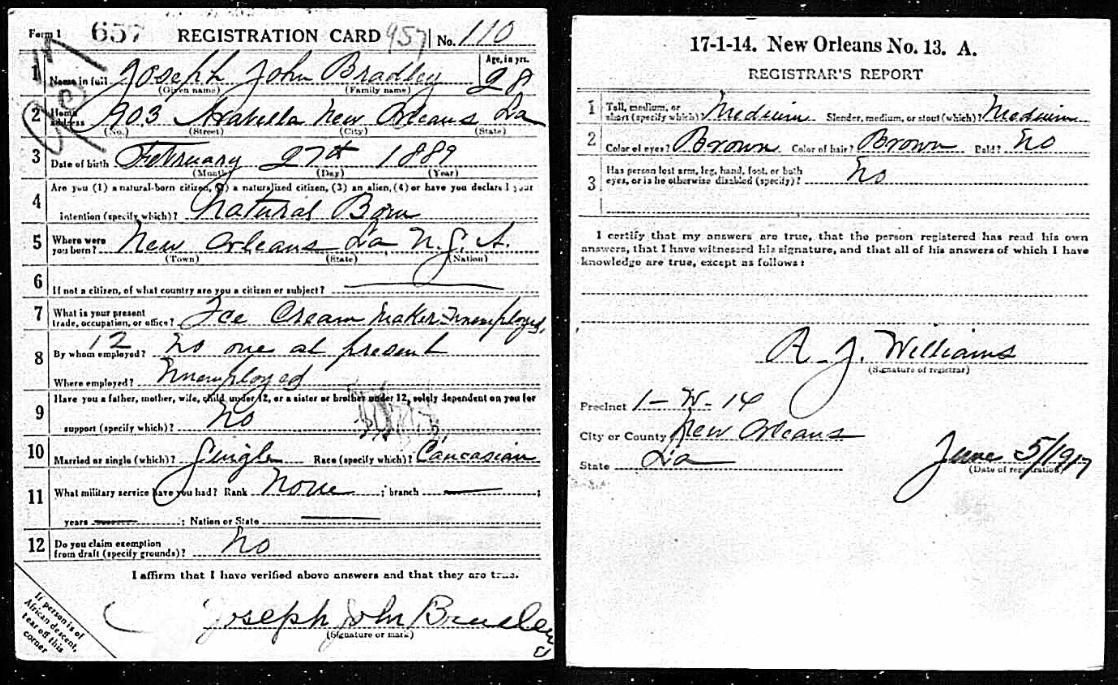 Form 1 657 REGISTRATION CARD 957 No. 110
1 Name in full Joseph John Bradley Age, in yrs. 28
(Given name) (Family name)
2 Home address 903 Arabella New Orleans La
(No.) (Street) (City) (State)
3 Date of birth February 27th 1889
(Month) (Day) (Year)
4 Are you (1) a natural-born citizen, (2) a naturalized citizen, (3) an alien, (4) or have you declared your
intention (specify which)? Natural Born
5 Where were you born? New Orleans La U.S.A.
(Town) (State) (Nation)
6 If not a citizen, of what country are you a citizen or subject?
7 What is your present trade, occupation, or office? Ice Cream Maker-Unemployed
12
8 By whom employed? No one at present
Where employed? Unemployed
9 Have you a father, mother, wife, child under 12, or a sister or brother under 12, solely dependent on you for
support (specify which)? No
10 Married or single (which)? Single Race (specify which)? Caucasian
11 What military service have you had? Rank None ; branch ;
years ; Nation or State
12 Do you claim exemption from draft (specify grounds)? No
I affirm that I have verified above answers and that they are true.
Joseph John Bradley
(Signature or mark)
If person is of
African descent,
tear off this
corner
17-1-14. New Orleans No. 13. A.
REGISTRAR'S REPORT
1 Tall, medium, or short (specify which)? Medium Slender, medium, or stout (which)? Medium
2 Color of eyes? Brown Color of hair? Brown Bald? No
3 Has person lost arm, leg, hand, foot, or both
eyes, or is he otherwise disabled (specify)? No
I certify that my answers are true, that the person registered has read his own
answers, that I have witnessed his signature, and that all of his answers of which I have
knowledge are true, except as follows:
R. J. Williams
(Signature of registrar)
Precinct 1-W-14
City or County New Orleans
State La June 5/1917
(Date of registration)